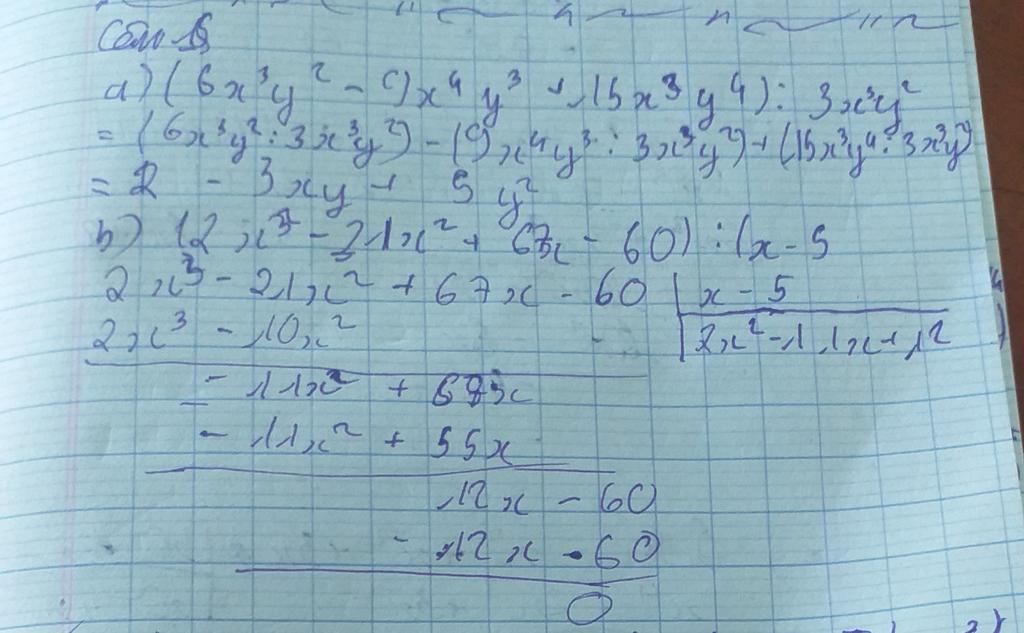 a) (6x³y² - 9x⁴y³ + 15x³y⁴) : 3x³y²
= (6x³y² : 3x³y²) - (9x⁴y³ : 3x³y²) + (15x³y⁴ : 3x³y²)
= 2 - 3xy + 5y²
b) (2x³ - 21x² + 67x - 60) : (x - 5
2x³ - 21x² + 67x - 60 | x - 5
2x³ - 10x² | 2x² - 11x + 12
- 11x² + 67x
- 11x² + 55x
12x - 60
- 12x - 60
0